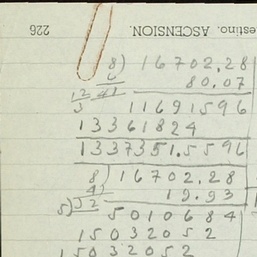 estino. ASCENSION. 226
8) 16702,28
6 80,07
12 41
3 11691596
13361824
1337351.5596
8) 16702,28
4) 19.93
5) 12 5010684
15032052
15032052